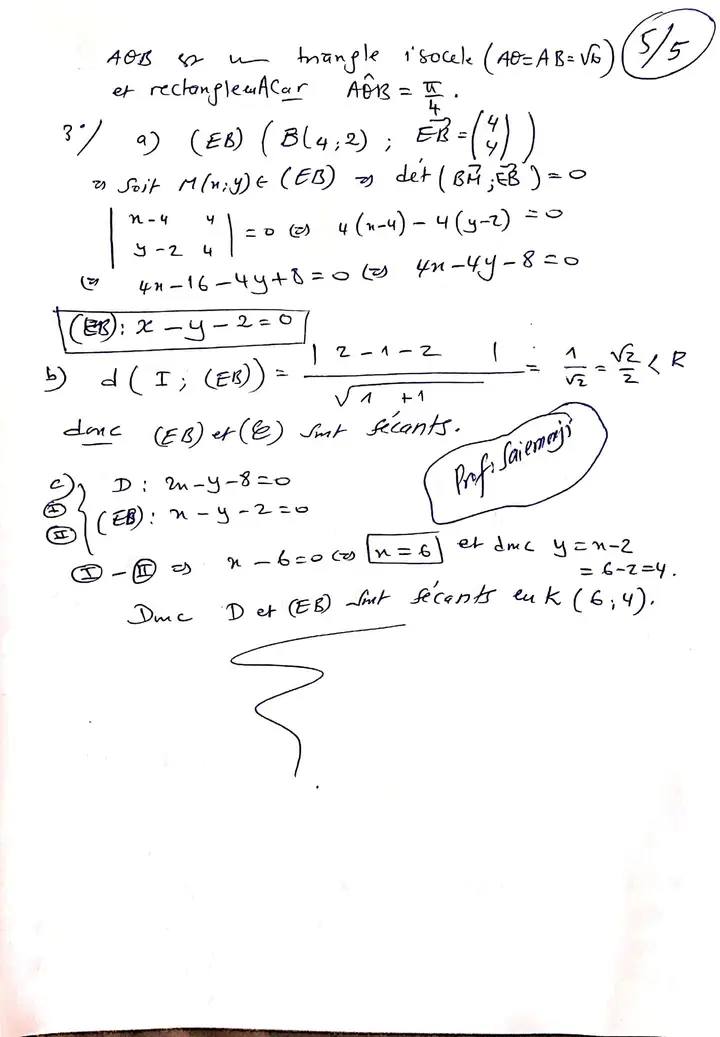 AOB est un triangle isocele (AO=AB=√10) 5/5
et rectangle en A car AÔB = π/4.
3°/ a) (EB) (B(4;2) ; EB⃗ = (4 4))
⇒ Soit M(x;y) ∈ (EB) ⇒ dét(BM⃗ ; EB⃗) = 0
|x-4 4 y-2 4| = 0 ⇔ 4(x-4) - 4(y-2) = 0
⇔ 4x-16-4y+8=0 ⇔ 4x-4y-8=0
(EB): x-y-2=0
b) d(I; (EB)) = |2-1-2| / √1+1 = 1/√2 = √2/2 < R
donc (EB) et (C) sont sécants.
Prof:
c) I D: 2x-y-8=0
II (EB): x-y-2=0
I - II ⇒ x-6=0 ⇔ x=6 et donc y=x-2
=6-2=4.
Donc D et (EB) sont sécants en K(6;4).